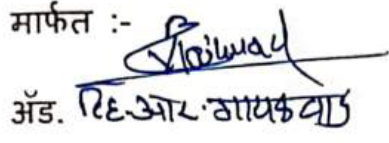 मार्फत :-
अ‍ॅड. व्हि.आर.गायकवाड